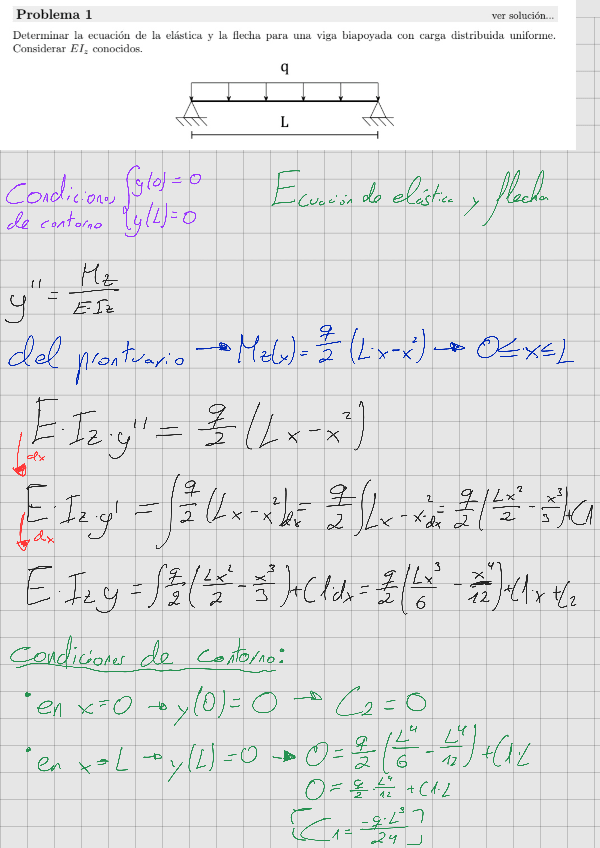 Problema 1 ver solución...
Determinar la ecuación de la elástica y la flecha para una viga biapoyada con carga distribuida uniforme.
Considerar EI_z conocidos.
q
L
Condiciones de contorno { y(0) = 0
y(L) = 0
Ecuación de elástica y flecha
y'' = Mz / E·Iz
del prontuario → Mz(x) = q/2 (L·x - x²) → 0 ≤ x ≤ L
E·Iz·y'' = q/2 (Lx - x²)
dx
E·Iz·y' = ∫ q/2 (Lx - x²) dx = q/2 ∫ Lx - x²·dx = q/2 (Lx²/2 - x³/3) + C1
dx
E·Iz y = ∫ q/2 (Lx²/2 - x³/3) + C1·dx = q/2 (Lx³/6 - x⁴/12) + C1·x + C2
Condiciones de contorno:
• en x=0 → y(0) = 0 → C2 = 0
• en x=L → y(L) = 0 → 0 = q/2 (L⁴/6 - L⁴/12) + C1·L
0 = q/2 · L⁴/12 + C1·L
[C1 = -q·L³/24]